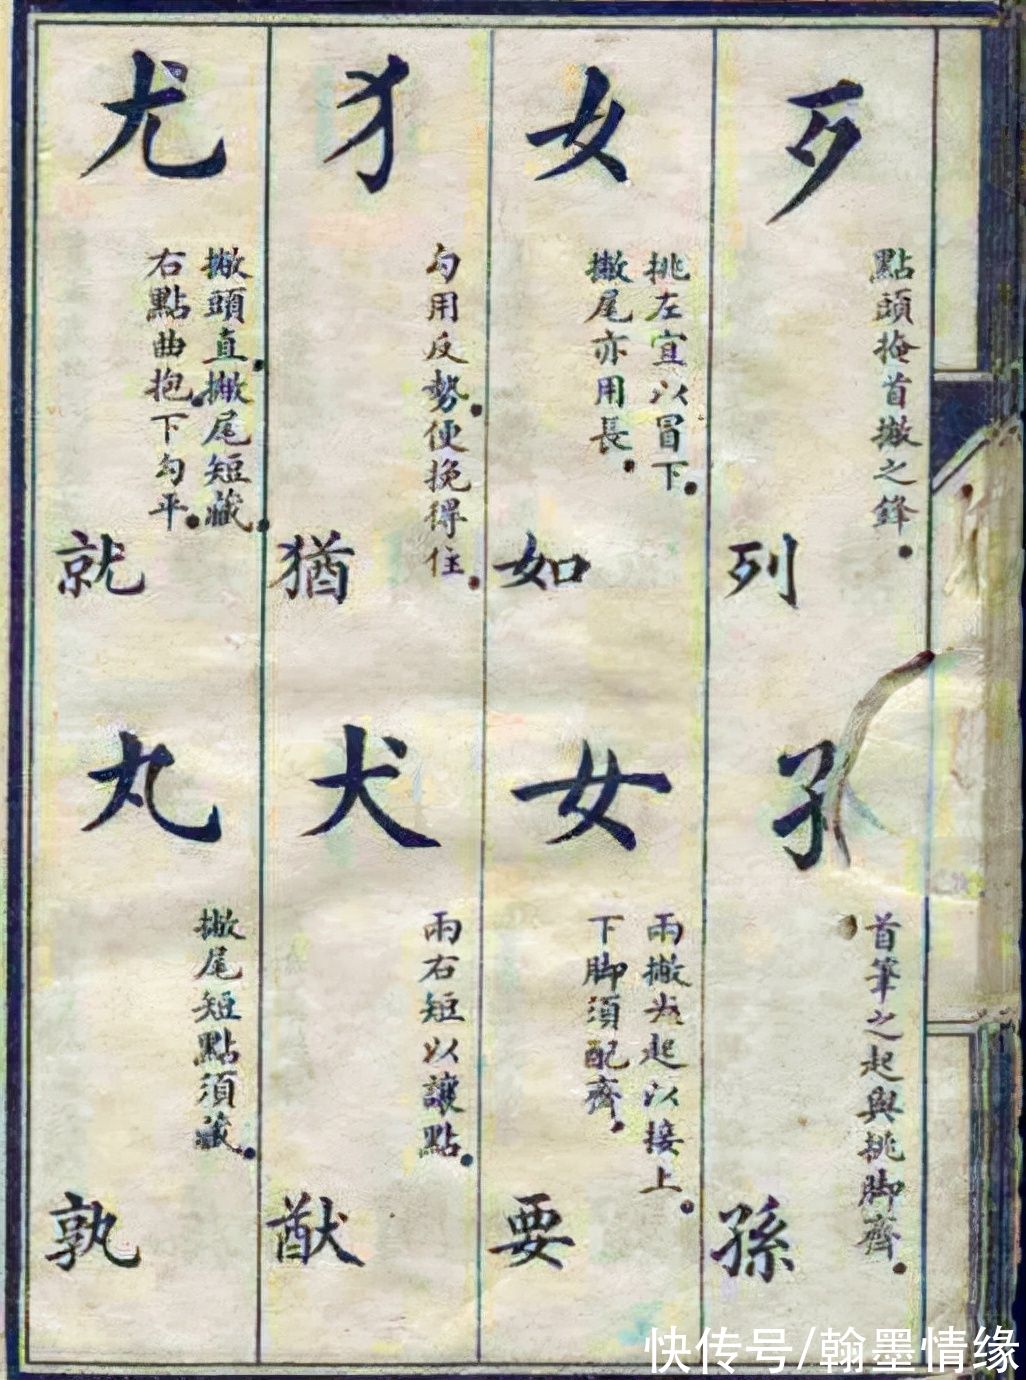 歹
點頭掩首撇之鋒
列
孑
首筆之起與挑脚齊
孫
女
挑左宜以冒下
撇尾亦用長
如
女
兩撇尖起以接上
下脚須配齊
要
犭
勾用反勢便挽得住
猶
犬
兩右短以讓點
猷
尤
撇頭直撇尾短藏
右點曲抱下勾平
就
丸
撇尾短點須藏
孰
快传号/翰墨情缘